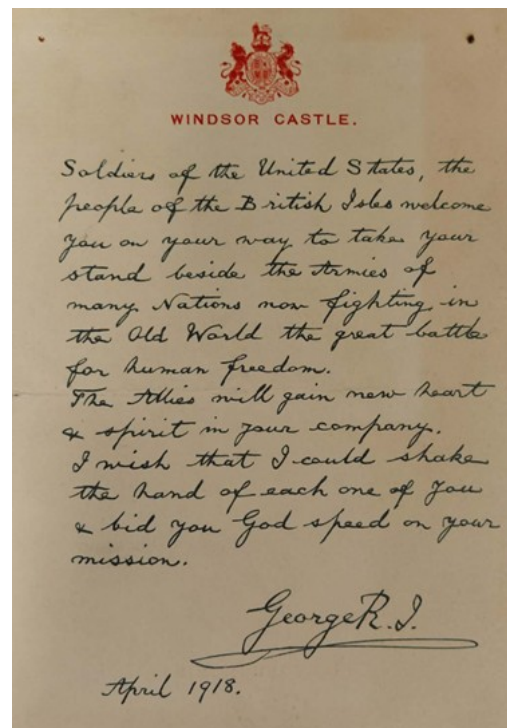 WINDSOR CASTLE.
Soldiers of the United States, the
people of the British Isles welcome
you on your way to take your
stand beside the Armies of
many Nations now fighting in
the Old World the great battle
for human freedom.
The Allies will gain new heart
& spirit in your company.
I wish that I could shake
the hand of each one of you
& bid you God speed on your
mission.
George R. I.
April 1918.